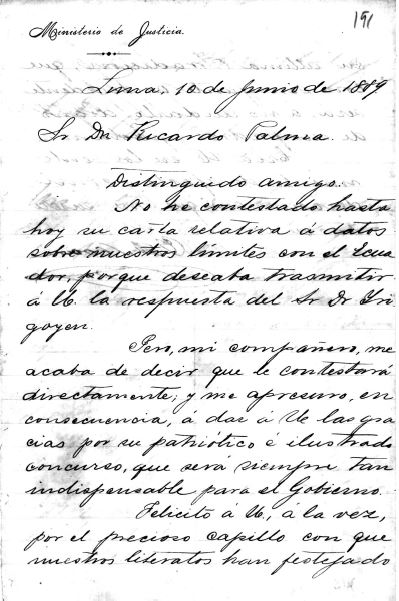 191
Ministerio de Justicia.
Lima, 10 de Junio de 1889
Sr Dn Ricardo Palma.
Distinguido amigo.
No he contestado hasta
hoy su carta relativa á datos
sobre nuestros límites con el Ecua
dor, porque deseaba trasmitir
á U. la respuesta del Sr Dr Yri
goyen.
Pero, mi compañero, me
acaba de decir que le contestará
directamente; y me apresuro, en
consecuencia, á dar á U. las gra
cias por su patriótico é ilustrado
concurso, que será siempre tan
indispensable para el Gobierno.
Felicito á U., á la vez,
por el precioso capillo con que
nuestros literatos han festejado